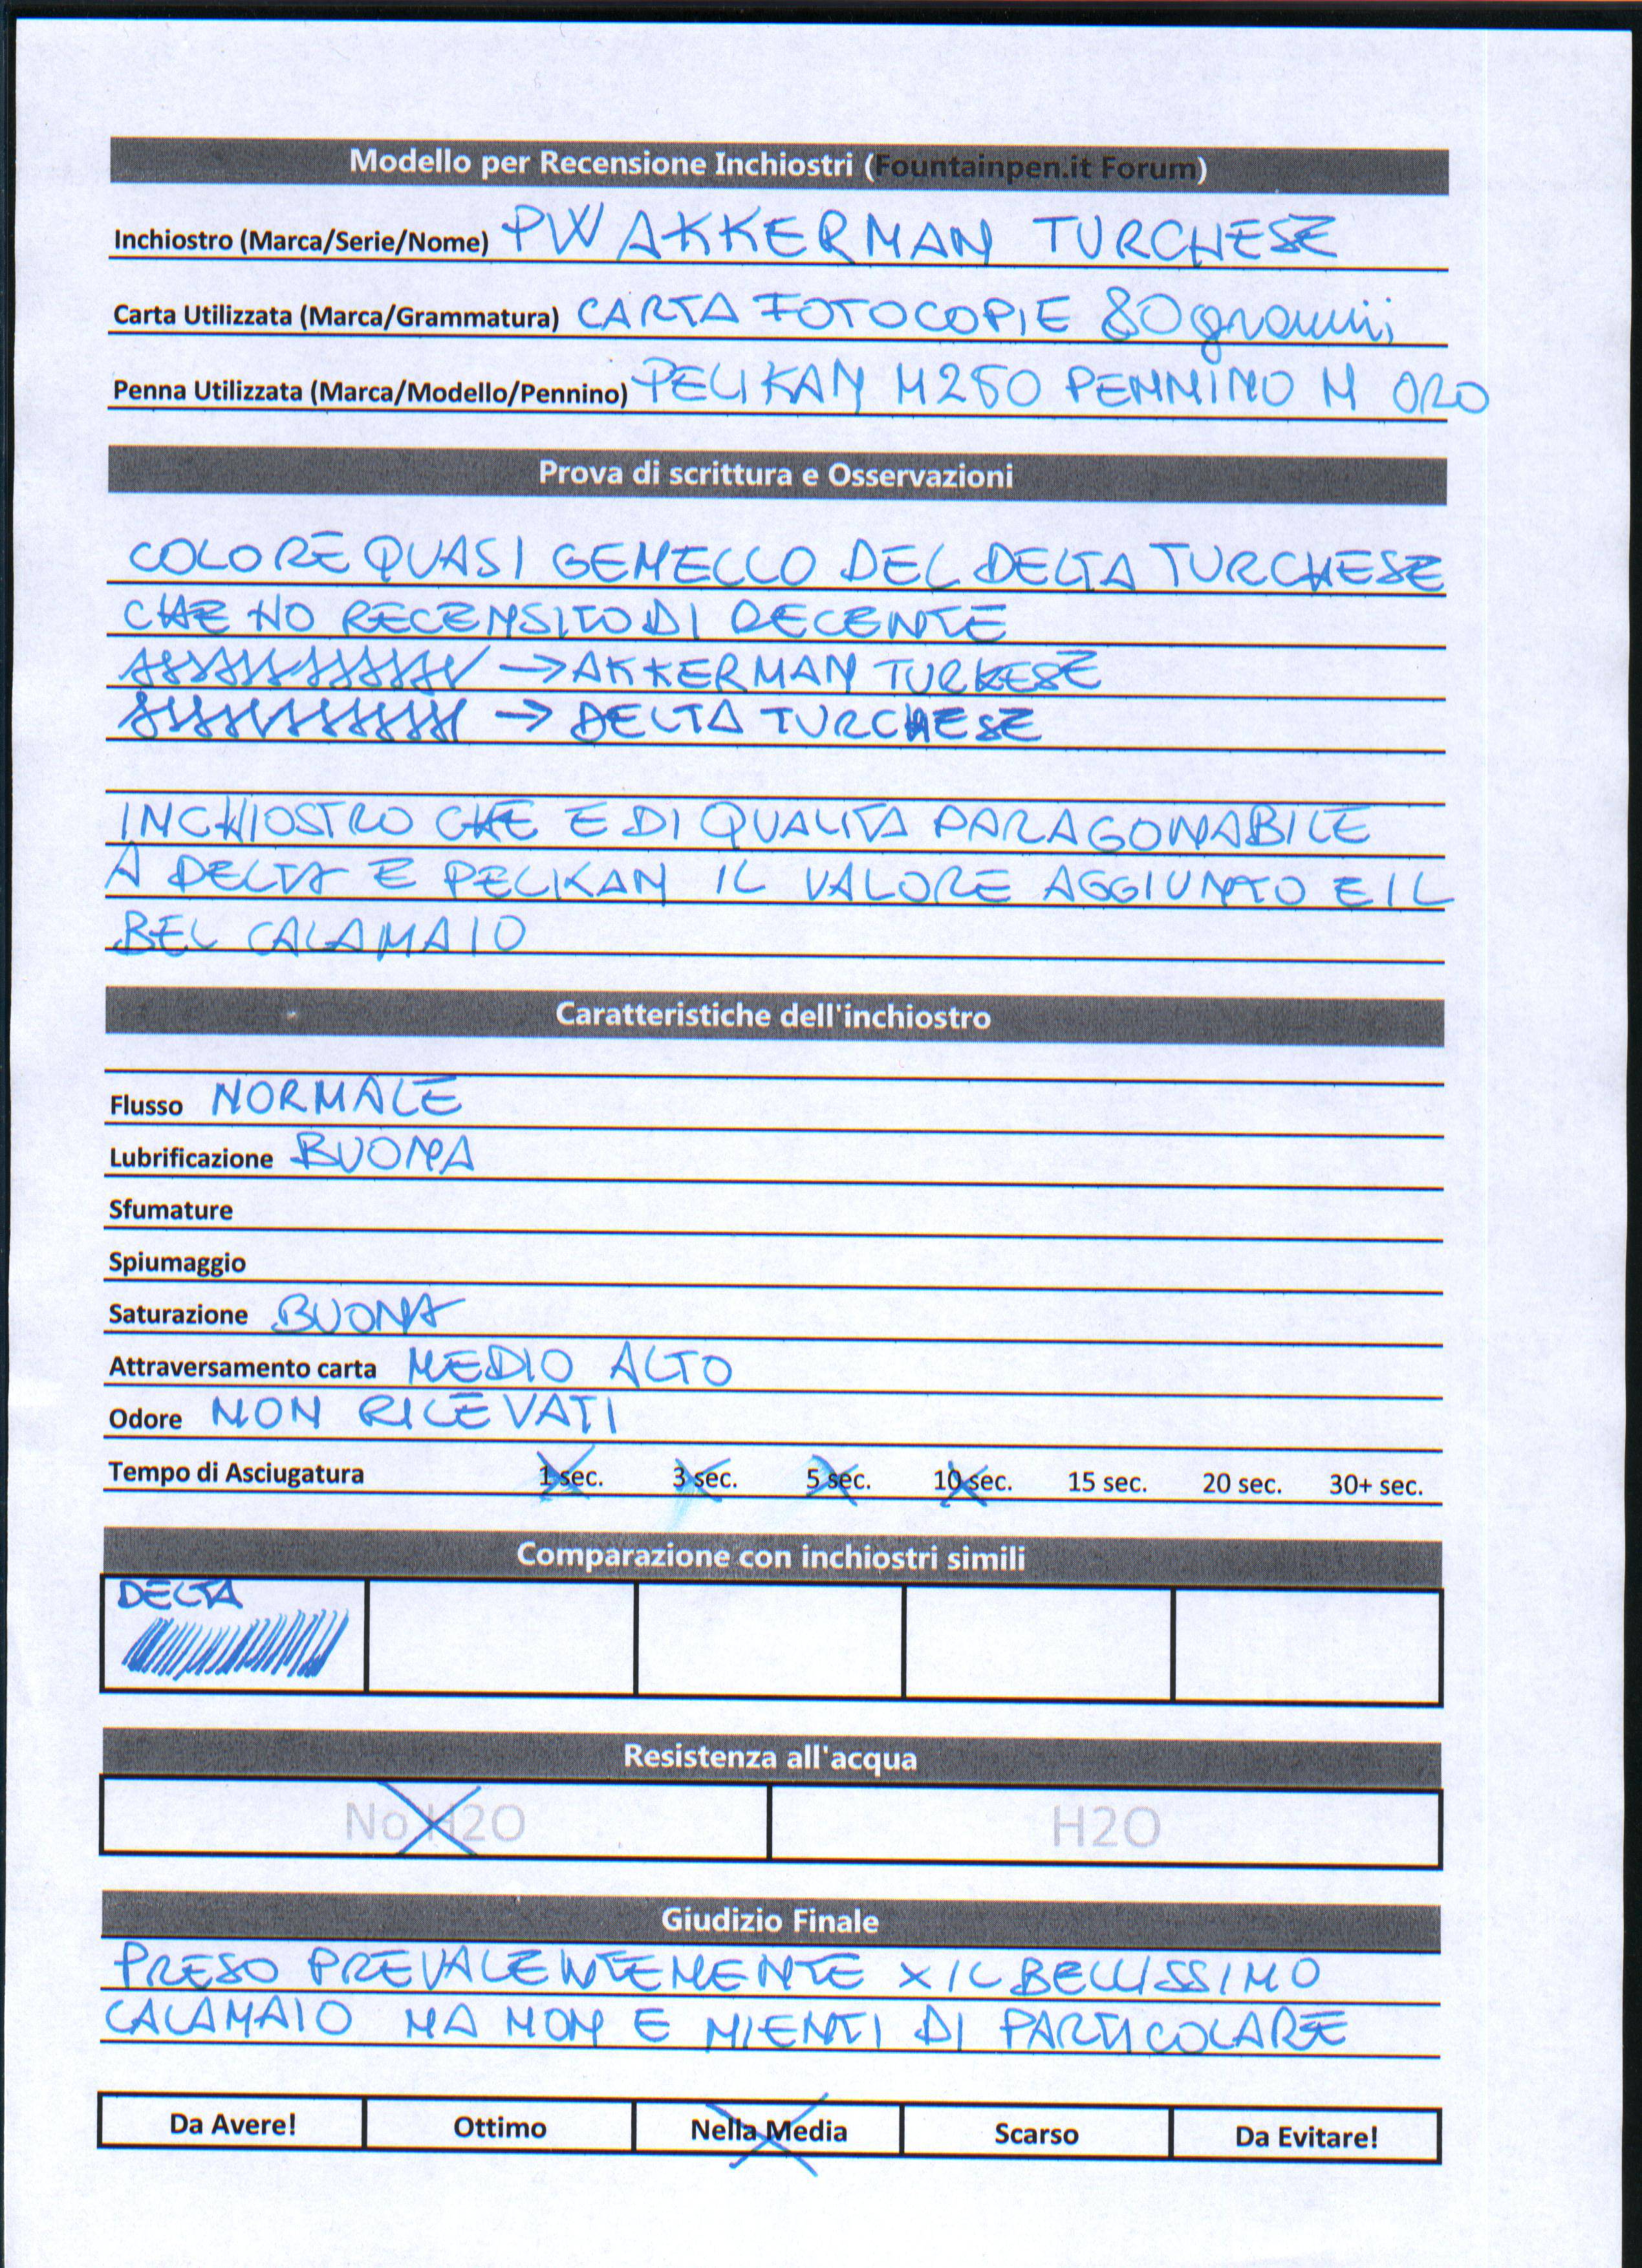 Modello per Recensione Inchiostri (Fountainpen.it Forum)
Inchiostro (Marca/Serie/Nome) PW AKKERMAN TURCHESE
Carta Utilizzata (Marca/Grammatura) CARTA FOTOCOPIE 80 grammi
Penna Utilizzata (Marca/Modello/Pennino) PELIKAN M250 PENNINO M ORO
Prova di scrittura e Osservazioni
COLORE QUASI GEMELLO DEL DELTA TURCHESE
CHE HO RECENSITO DI RECENTE
→ AKKERMAN TURKESE
→ DELTA TURCHESE
INCHIOSTRO CHE E DI QUALITA PARAGONABILE
A DELTA E PELIKAN IL VALORE AGGIUNTO E IL
BEL CALAMAIO
Caratteristiche dell'inchiostro
Flusso NORMALE
Lubrificazione BUONA
Sfumature
Spiumaggio
Saturazione BUONA
Attraversamento carta MEDIO ALTO
Odore NON RILEVATI
Tempo di Asciugatura 1 sec. 3 sec. 5 sec. 10 sec. 15 sec. 20 sec. 30+ sec.
Comparazione con inchiostri simili
DELTA
Resistenza all'acqua
No H2O H2O
Giudizio Finale
PRESO PREVALENTEMENTE X IL BELLISSIMO
CALAMAIO MA NON E NIENTI DI PARTICOLARE
Da Avere! Ottimo Nella Media Scarso Da Evitare!